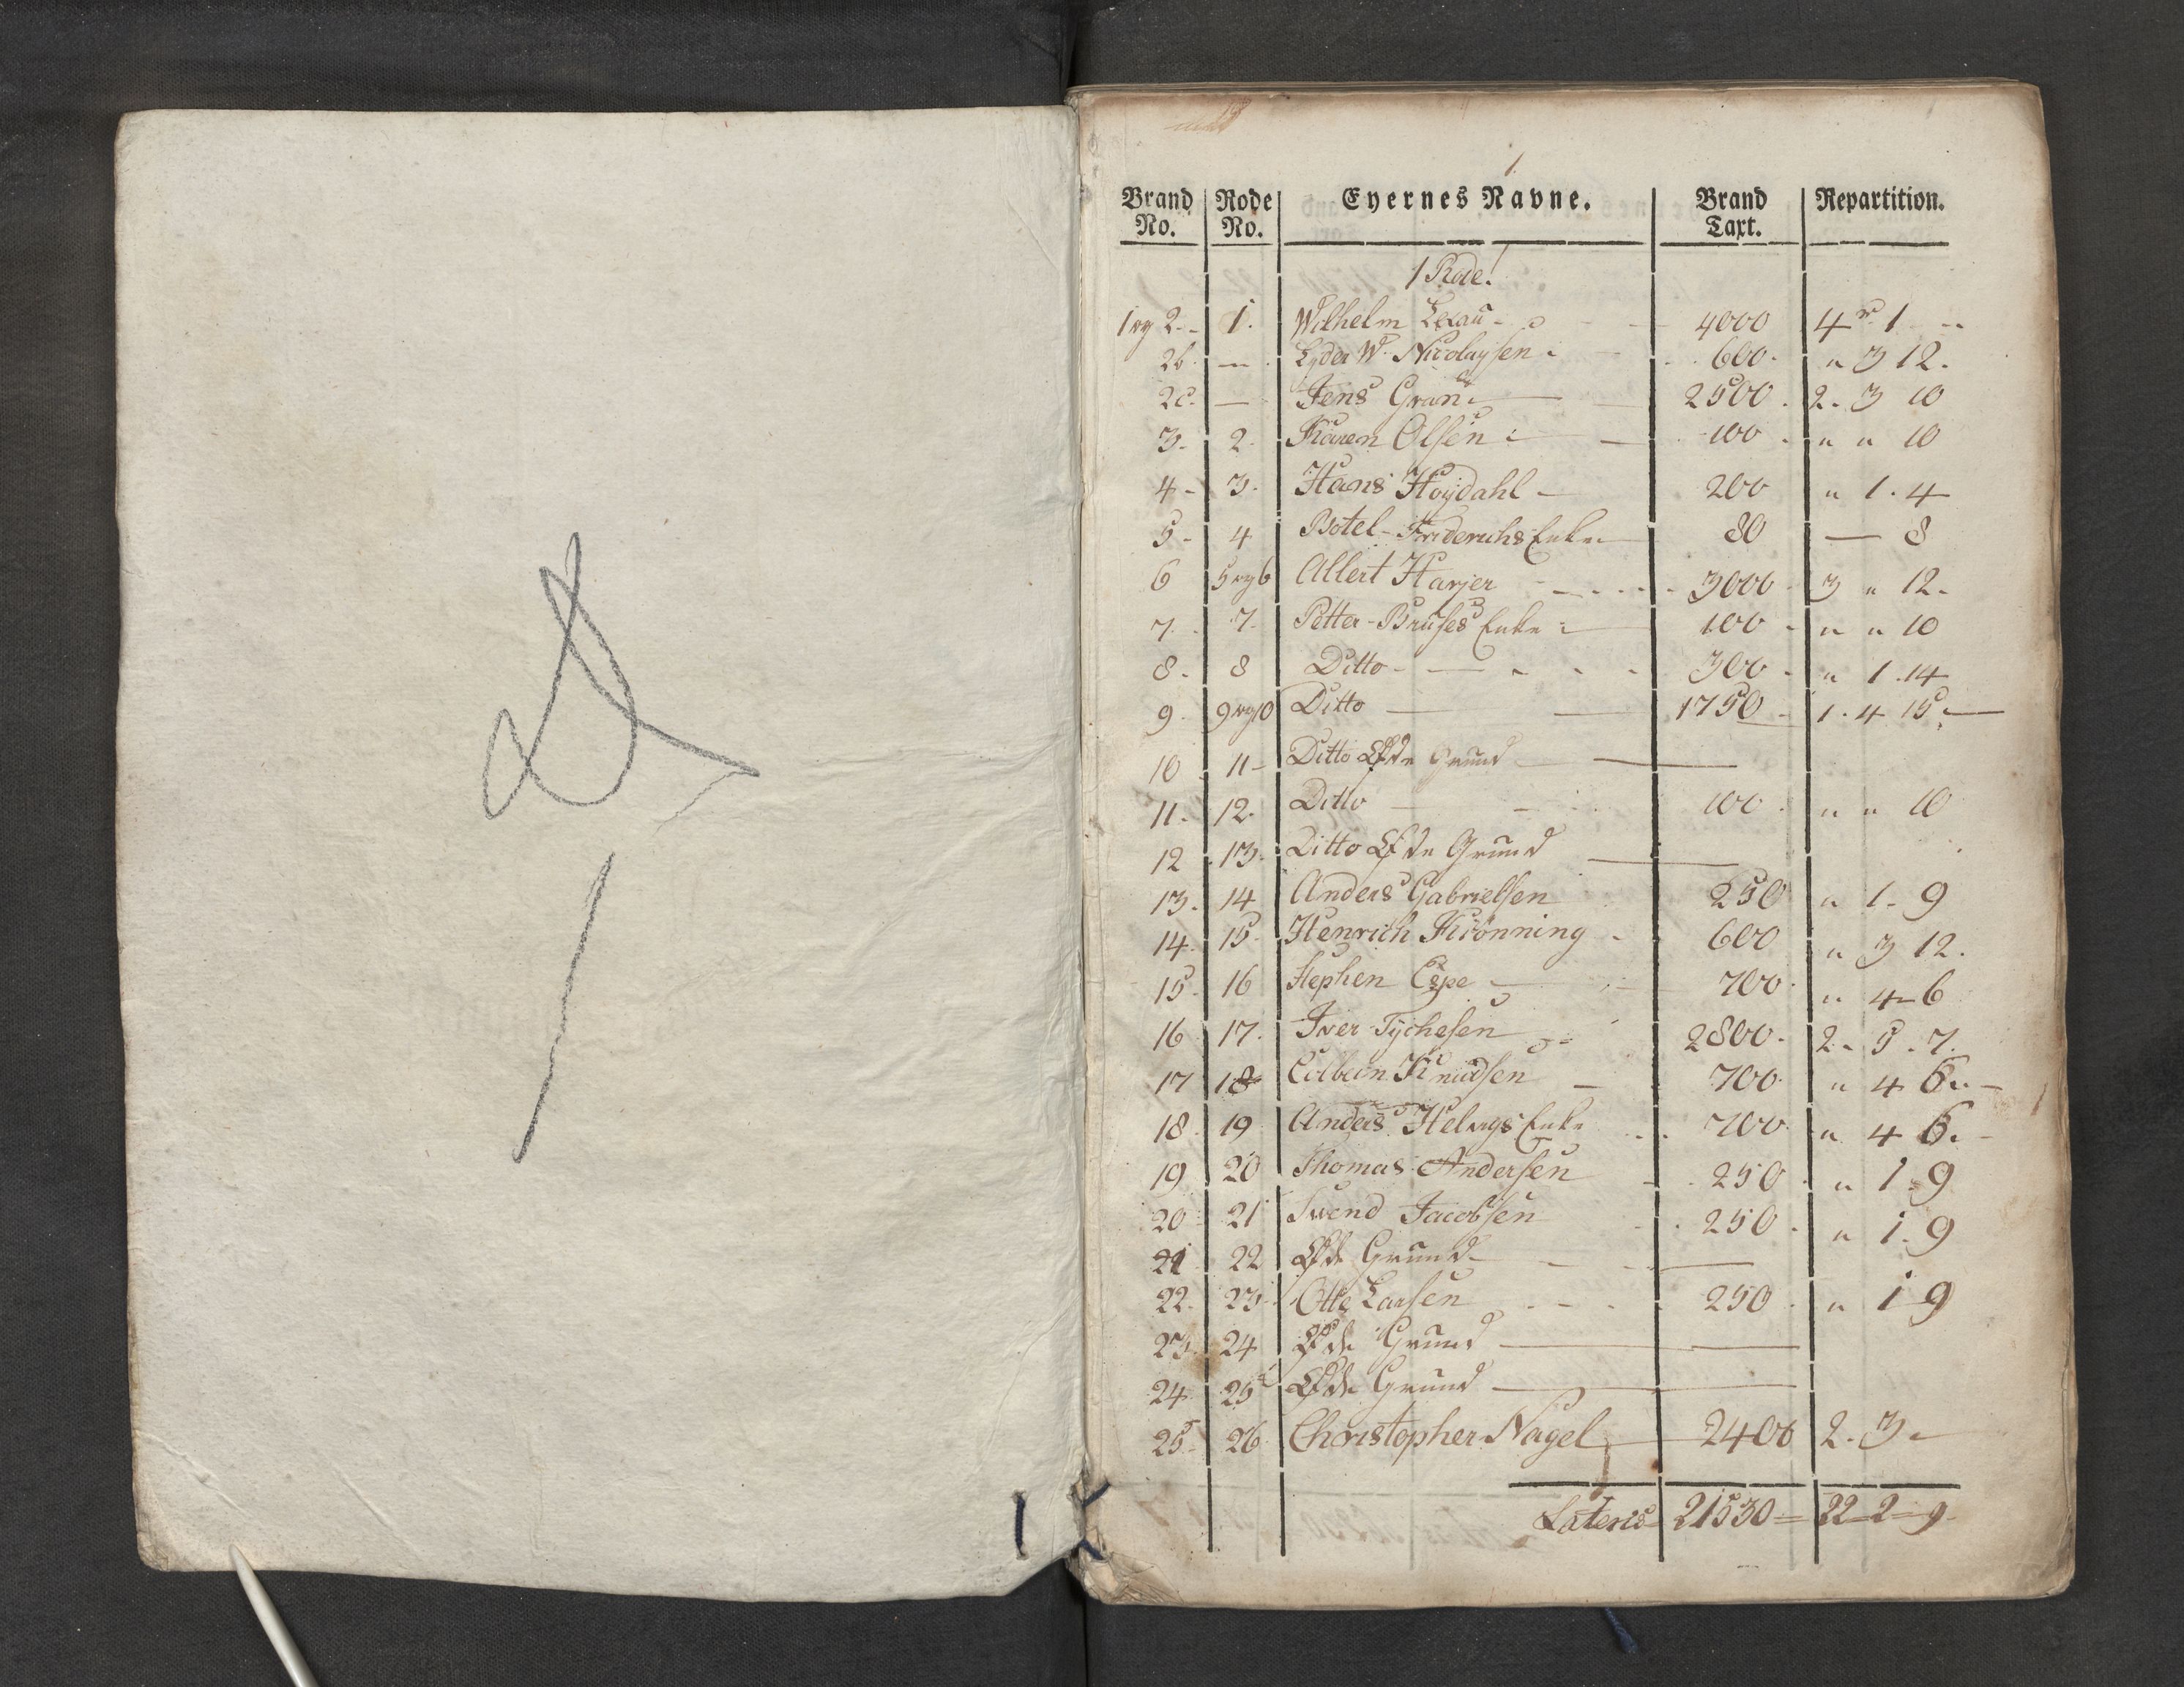 1.
Brand No. Rode No. Eyernes Navne. Brand Taxt. Repartition.
1 Rode.
1 og 2 - 1. Wilhelm Lexau - 4000 4 r 1 "
2b. — Lyder W. Nicolaysen 600. " 3 12.
2c. — Jens Gran 2500. 2. 3 10
3. 2. Karen Olsen 100 " " 10
4 - 3. Hans Høydahl - 200 " 1. 4
5 - 4 Botel - Friderichs Enke 80 — 8
6 5 og 6 Allert Harjer 3000 3 " 12.
7. 7. Petter - Bruses Enke 100 " " 10
8. 8 Ditto - 300 " 1. 14
9. 9 og 10 Ditto — 1750 1. 4 15.
10 11 - Ditto Øde Grund —
11. 12. Ditto 100 " " 10
12 13. Ditto Øde Grund —
13. 14 Anders Gabrielsen 250 " 1. 9
14. 15. Henrich Krønning - 600 " 3 12.
15. 16 Stephen Espe 700 " 4 - 6
16 17. Iver Tychesen 2800. 2. 5. 7.
17 18 Colbein Knudsen — 700. " 4 6.
18. 19 Anders Helvigs Enke 700. " 4 6.
19 20 Thomas Andersen 250 " 1. 9
20 21 Svend Jacobsen 250. " 1. 9
21 22 Øde Grund —
22. 23. Otte Larsen 250. " 1 9
23. 24 Øde Grund —
24. 25 Øde Grund —
25. 26 Christopher Nagel 2400 2. 3.
Lateris 21530 = 22 - 2 - 9.